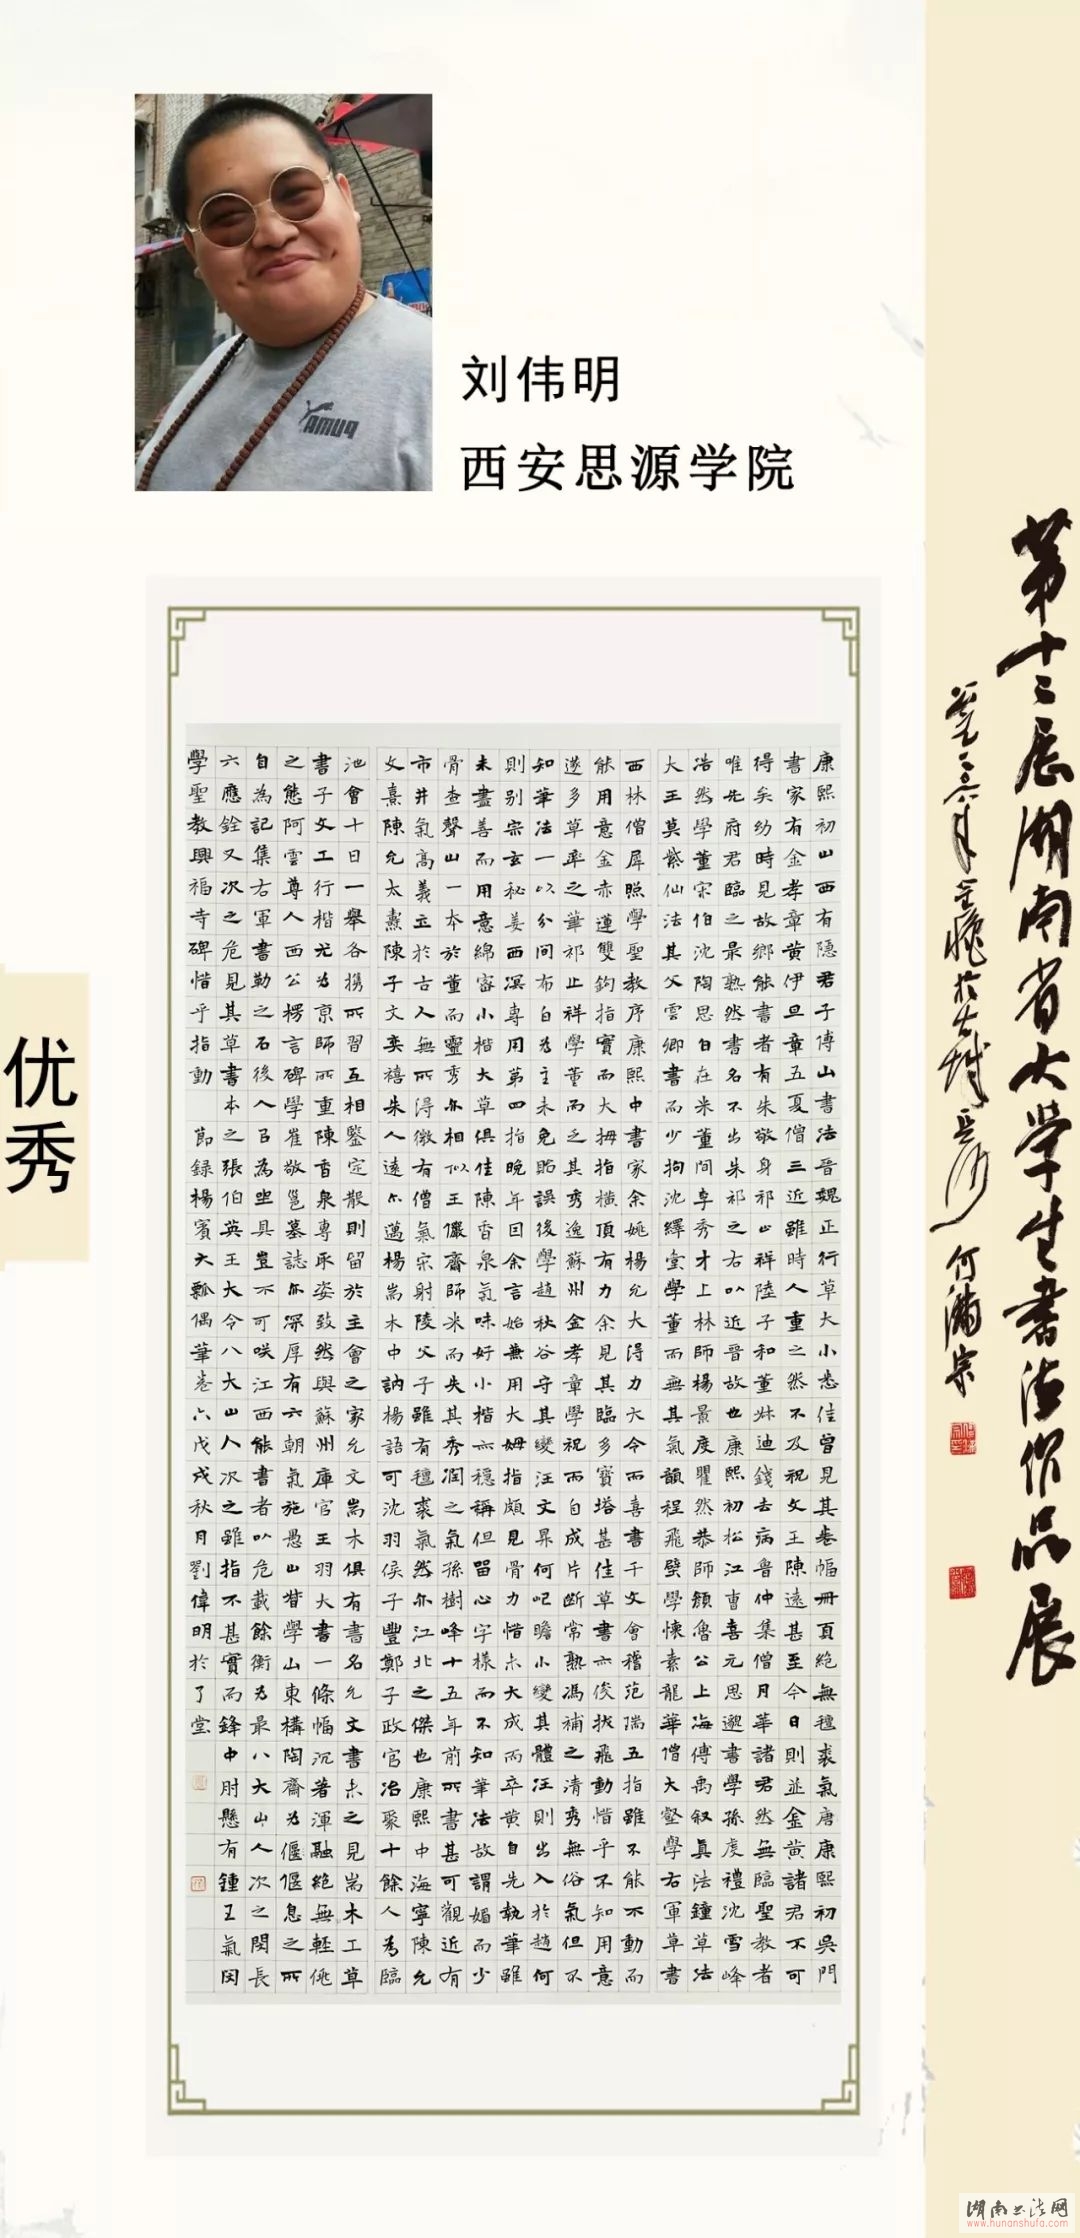 刘伟明
西安思源学院
优秀
PUMA
第十二届湖南省大学生书法作品展
何满宗
康熙初山西有隱君子傅山書法晉魏正行草大小悉佳曾見其卷幅冊頁絕無氊裘氣唐康熙初吳門
書家有金孝章黃伊旦章五夏僧三近雖時人重之然不及祝文王陳遠甚至今日則並金黃諸君不可
得矣幼時見故鄉能書者有朱敬身祁止祥陸子和董姒迪錢去病魯仲集僧月華諸君然無臨聖教者
唯先府君臨之最熟然書名不出朱祁之右以近晉故也康熙初松江曹喜元思邈書學孫虔禮沈雪峰
浩然學董宋伯沈陶思白在米董間李秀才上林師楊景度瞿然恭師顏魯公上海傅禹叙真法鐘草法
大王莫紫仙法其父雲卿書而少拘沈繹堂學董而無其氣韻程飛璧學懷素龍華僧大壑學右軍草書
西林僧犀照學聖教序康熙中書家余姚楊允大得力大令而喜書千文會稽范瑞五指雖不能不動而
能用意金赤蓮雙鉤指實而大拇指橫頂有力余見其臨多寶塔甚佳草書亦俊拔飛動惜乎不知用意
遂多草率之筆祁止祥學董而乏其秀逸蘇州金孝章學祝而自成片斷常熟馮補之清秀無俗氣但不
知筆法一以分間布白為主未免貽誤後學趙秋谷守其變汪文昇何屺瞻小變其體汪則出入於趙何
則別宗玄秘姜西溟專用第四指晚年因余言始兼用大姆指頗見骨力惜未大成而卒黃自先執筆雖
未盡善而用意綿密小楷大草俱佳陳香泉氣味好小楷亦穩稱但留心字樣而不知筆法故謂媚而少
骨查聲山一本於董而靈秀亦相似王儼齋師米而失其秀潤之氣孫樹峰十五年前所書甚可觀近有
市井氣高義立於古人無所得微有僧氣宋射陵父子雖有氊裘氣然亦江北之傑也康熙中海寧陳允
文熹陳允太熹陳子文奕禧朱人遠尔邁楊嵩木中訥楊語可沈羽侯子豐鄭子政官治聚十餘人為臨
池會十日一舉各攜所習互相鑒定散則留於主會之家允文嵩木俱有書名允文書未之見嵩木工草
書子文工行楷尤為京師所重陳香泉專取姿致然與蘇州庫官王羽大書一條幅沉著渾融絕無輕佻
之態阿雲尊人西公楞言碑學崔敬邕墓誌亦深厚有六朝氣施愚山嘗學山東構陶齋為偃偃息之所
自為記集右軍書勒之石後人召為㘴具豈不可咲江西能書者以危載餘衡為最八大山人次之閔長
六應銓又次之危見其草書本之張伯英王大令八大山人次之雖指不甚實而鋒中肘懸有鍾王氣因
學聖教興福寺碑惜乎指動 節録楊賓大瓢偶筆卷六戊戌秋月劉偉明於了堂
湖南书法网
www.hunanshufa.com